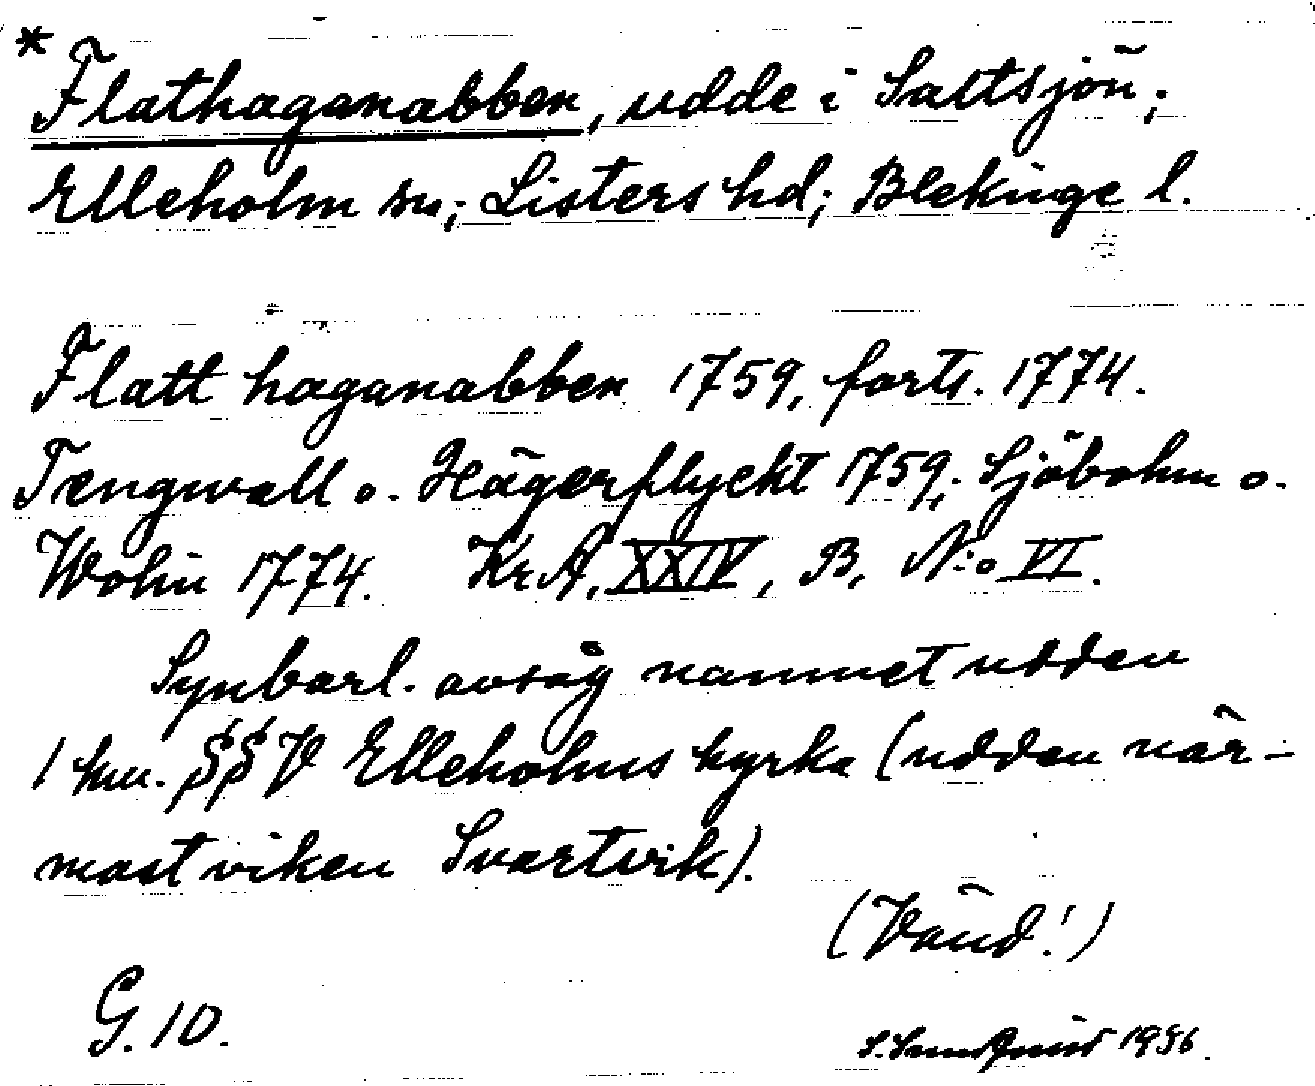 * Flathaganabben, udde i Saltsjön;
Elleholm sn; Listers hd; Blekinge l.
Flatt haganabben 1759, forts. 1774.
Tengwall o. Hägerflyckt 1759; Sjöbohm o.
Wohn 1774. KrA, XXIV, B, N:o VI.
Synbarl. avsåg namnet udden
1 km. SSV Elleholms kyrka (udden när-
mast viken Svartvik).
(Vänd!)
G. 10.
S. Sundquist 1936.